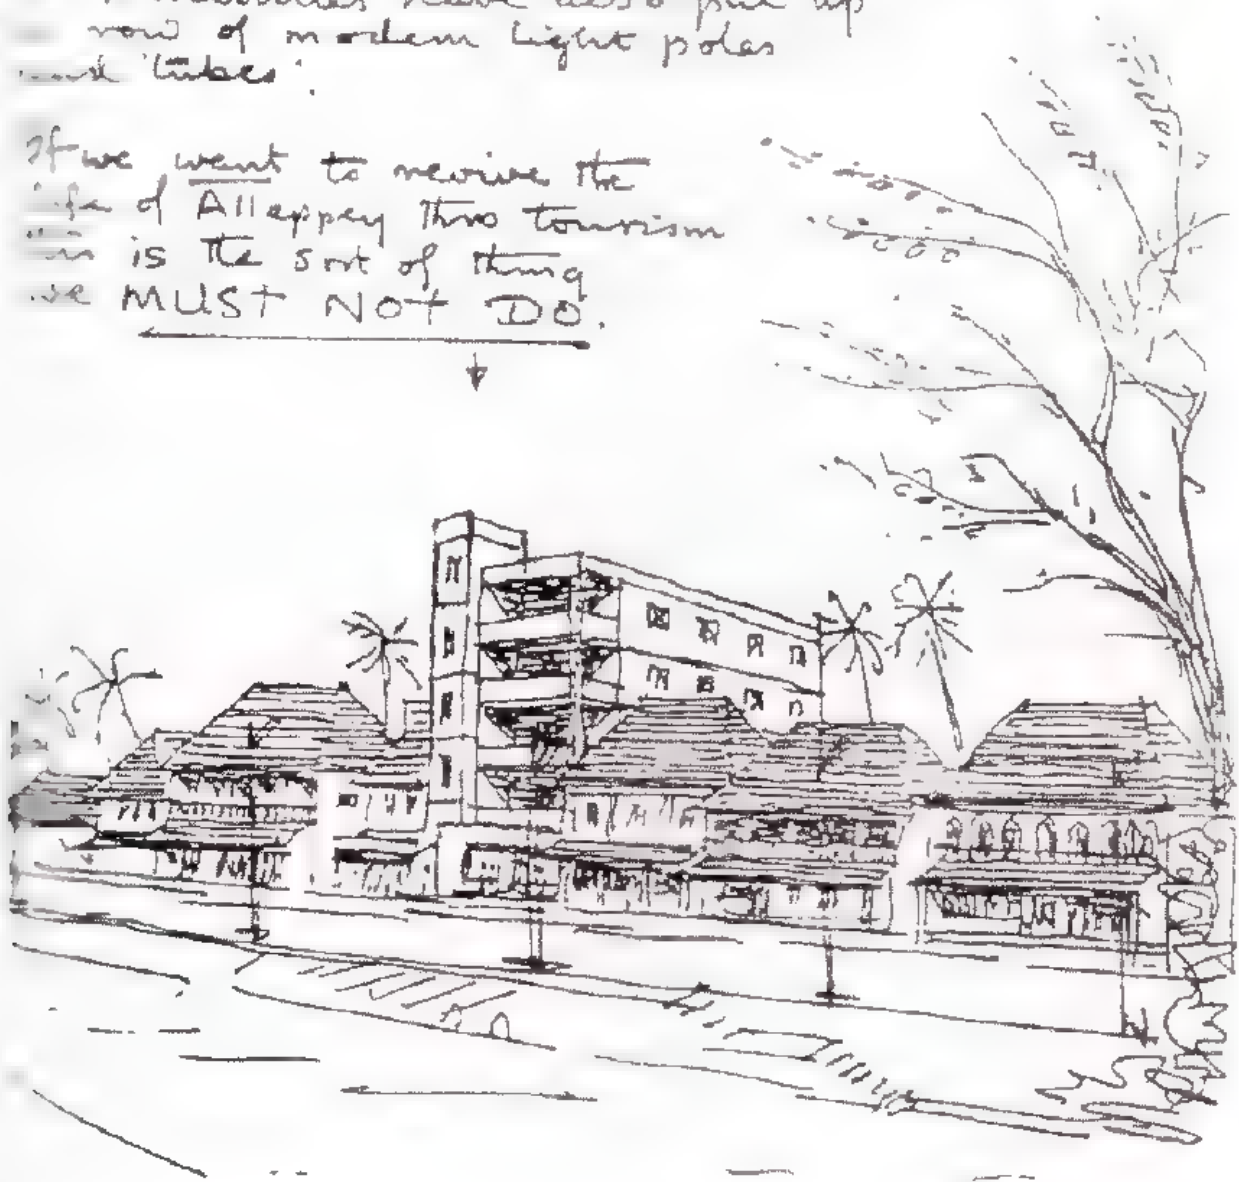 have also put up
row of modern light poles
and 'tubes'.
If we want to revive the
life of Alleppey thro tourism
this is the sort of thing
we MUST NOT DO.